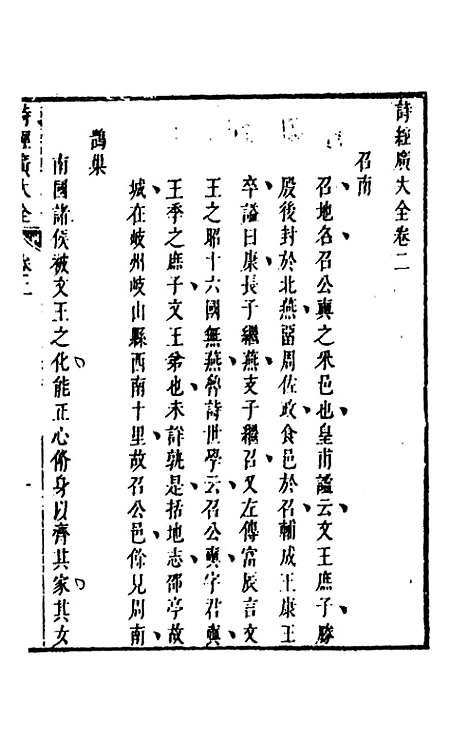 詩經廣大全卷二
召南
召地名召公奭之采邑也皇甫謐云文王庶子勝
殷後封於北燕畱周佐政食邑於召輔成王康王
卒諡曰康長子繼燕支子繼召又左傳富辰言文
王之昭十六國無燕魯詩世學云召公奭字君奭
王季之庶子文王弟也未詳孰是括地志邵亭故
城在岐州岐山縣西南十里故召公邑餘見周南
鵲巢
南國諸侯被文王之化能正心脩身以齊其家其女
詩經廣大全 卷二